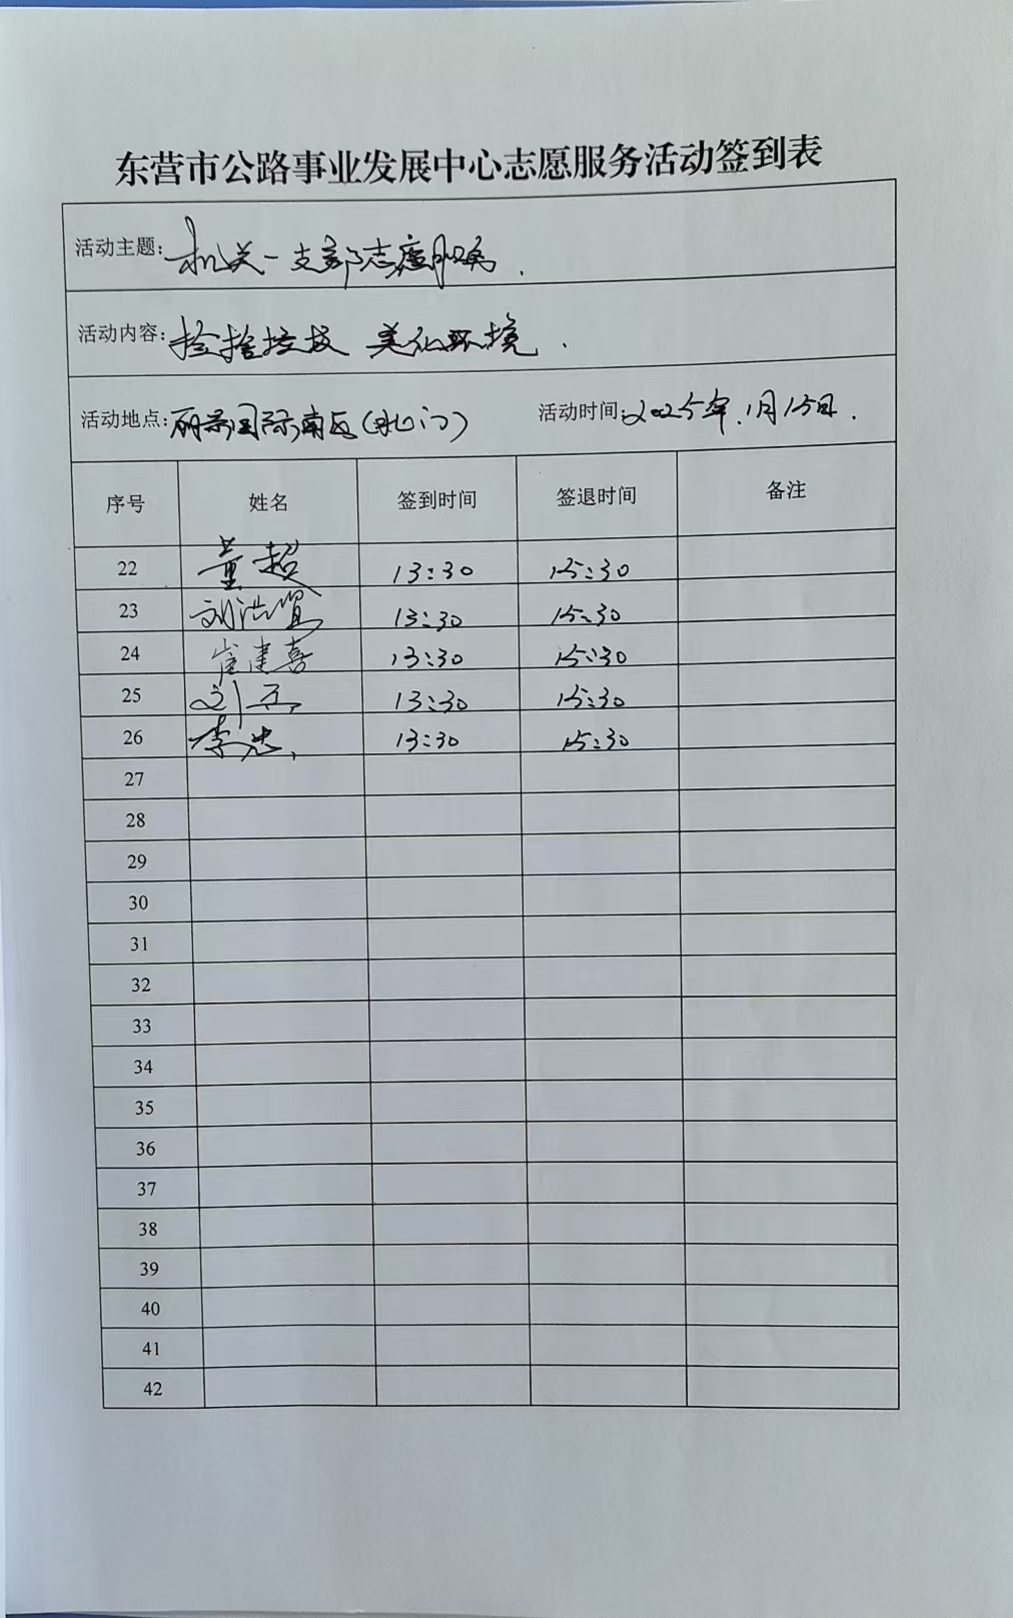 东营市公路事业发展中心志愿服务活动签到表
活动主题: 机关一支部志愿服务.
活动内容: 捡拾垃圾 美化环境.
活动地点: 丽景国际南区(北门) 活动时间: 2025年.1月15日.
序号 姓名 签到时间 签退时间 备注
22 董超 13:30 15:30
23 刘浩 13:30 15:30
24 崔建喜 13:30 15:30
25 刘 13:30 15:30
26 李忠 13:30 15:30
27
28
29
30
31
32
33
34
35
36
37
38
39
40
41
42